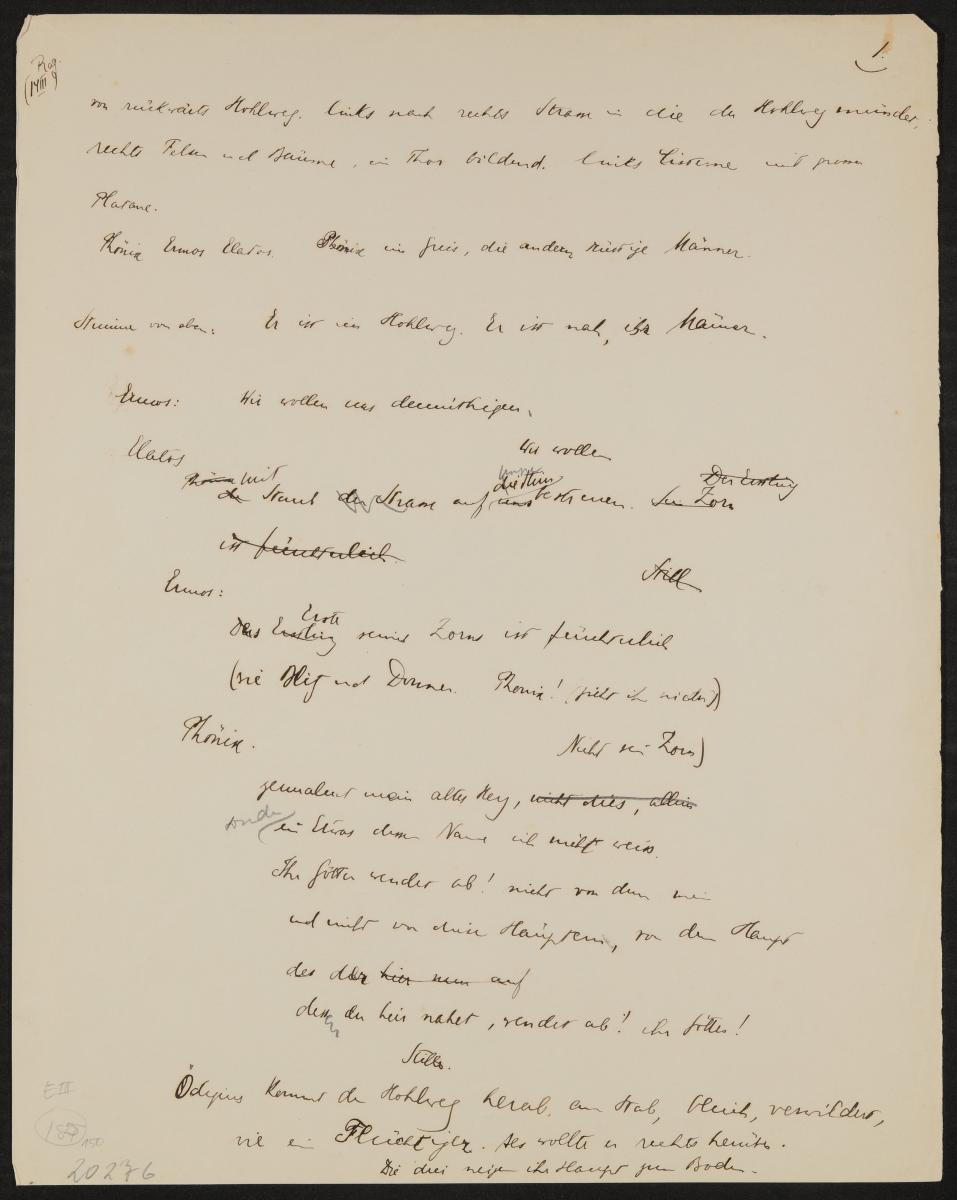 1.
Rag.
(14 III)
von rückwärts Hohlweg. links nach rechts Strasse in die der Hohlweg mündet,
rechts Felsen und Bäume, ein Thor bildend. links Cisterne mit grosser
Platane.
Phönix Ermos Elatos. Phönix ein Greis, die andern rüstige Männer.
Stimme von oben: Er ist im Hohlweg. Er ist nah, ihr Männer.
Ermos: Wir wollen uns demüthigen.
Elatos Wir wollen
mit Der Erstling
Staub der Strasse auf uns streuen. Sein Zorn
ist fürchterlich.
Still
Ermos:
Erste
Das Erstling seines Zorns ist fürchterlich
(wie Blitz und Donner. Phönix! (zieht ihn nieder)
Phönix. Nicht sein Zorn)
zermalmt mein altes Herz, nicht dies, allein
sondern
ein Etwas dessen Name ich nicht weiss.
Ihr Götter wendet ab! nicht von dem mein
und nicht von diesen Häuptern, von dem Haupt
des der hier nun auf
dess der hier nahet, wendet ab! ihr Götter!
Stille.
Ödipus kommt den Hohlweg herab, am Stab, bleich, verwildert,
wie ein Flüchtiger. Als wollte er rechts hinüber.
Die drei neigen ihr Haupt zum Boden.
E III
187/150
20236